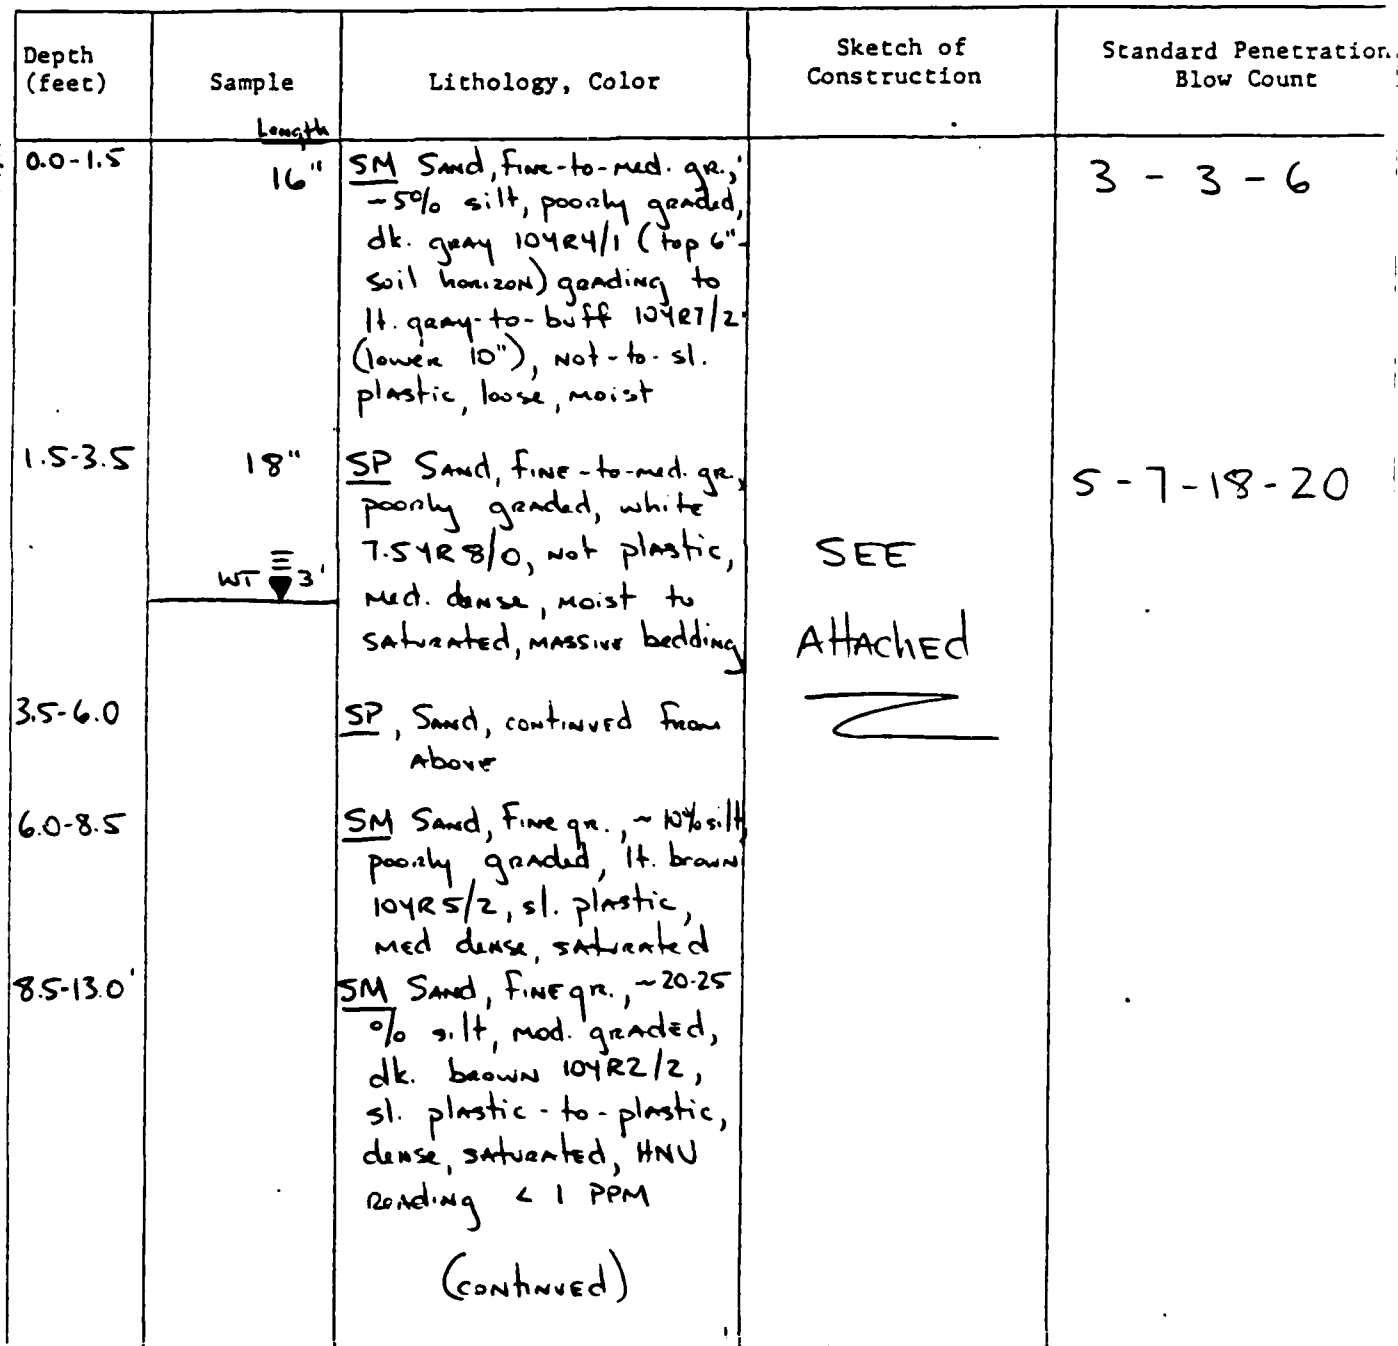 Depth
(feet)
Sample
Length
Lithology, Color
Sketch of
Construction
Standard Penetration
Blow Count
0.0-1.5
16"
SM Sand, fine-to-med. gr.,
~5% silt, poorly graded,
dk. gray 10YR4/1 (top 6"-
soil horizon) grading to
lt. gray-to-buff 10YR7/2
(lower 10"), not-to-sl.
plastic, loose, moist
3 - 3 - 6
1.5-3.5
18"
WT 3'
SP Sand, fine-to-med. gr.,
poorly graded, white
7.5YR 8/0, not plastic,
med. dense, moist to
saturated, massive bedding
5 - 7 - 18 - 20
SEE
Attached
3.5-6.0
SP, Sand, continued from
above
6.0-8.5
SM Sand, fine gr., ~10% silt
poorly graded, lt. brown
10YR 5/2, sl. plastic,
med dense, saturated
8.5-13.0'
SM Sand, fine gr., ~20-25
% silt, mod. graded,
dk. brown 10YR2/2,
sl. plastic-to-plastic,
dense, saturated, HNU
reading < 1 PPM
(continued)